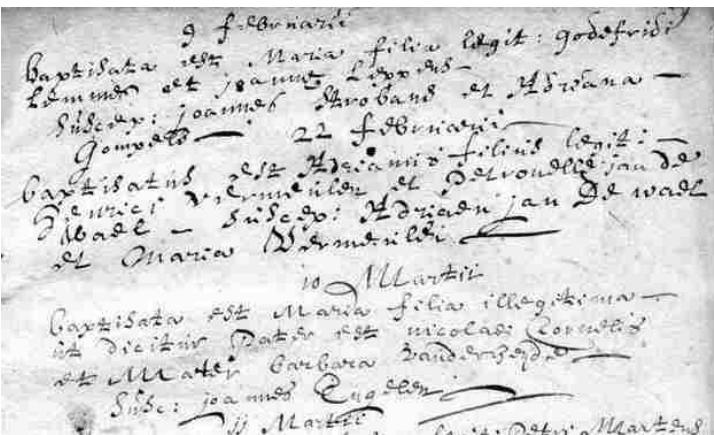 9 februarii
baptisata est Maria filia legit: godefridi
Lemmens et joannæ Leppens
suscep: joannes Stroband et Adriana
Gompels
22 februarii
baptisatus est Adrianus filius legit:
Henrici Vermeulen et Petronelle jan de
Wael suscep: Adriaen jan De wael
et Maria Vermeulen
10 Martii
baptisata est Maria filia illegitima
ut dicitur Pater est nicolaes Cornelis
et Mater barbara Vanderheyde
susc: joannes Engelen
11 Martii
legit: Petri Martens